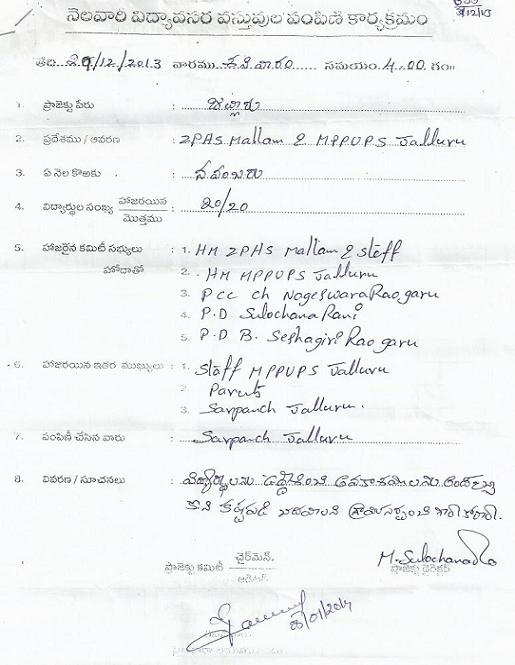 నెలవారీ విద్యావసర వస్తువుల పంపిణి కార్యక్రమం
3/12/13
తేది /12/2013 వారము శనివారం సమయం. 4.00 గం॥
1. ప్రాజెక్టు పేరు : జల్లూరు
2. ప్రదేశము / ఆవరణ : ZPHS Mallam & MPPUPS Jalluru
3. ఏ నెల కొఱకు : నవంబరు
4. విద్యార్థుల సంఖ్య హాజరయిన / మొత్తము : 20/20
5. హాజరైన కమిటీ సభ్యులు : 1. HM ZPHS Mallam & Staff
హోదాతో 2. HM MPPUPS Jalluru
3. PCC Ch Nageswara Rao garu
4. P.D Sulochana Rani
5. P.D B. Seshagiri Rao garu
6. హాజరయిన ఇతర ముఖ్యులు : 1. Staff MPPUPS Jalluru
2. Parents
3. Sarpanch Jalluru.
7. పంపిణీ చేసిన వారు : Sarpanch Jalluru
8. వివరణ / సూచనలు : విద్యార్థులను ఉద్దేశించి అవకాశములను
కొని కష్టపడి చదవాలని గ్రామసర్పంచి గారు కోరారి.
ప్రాజెక్టు కమిటీ ఛైర్‌మెన్.
M. Sulochana
ప్రాజెక్టు డైరెక్టర్
/01/2014